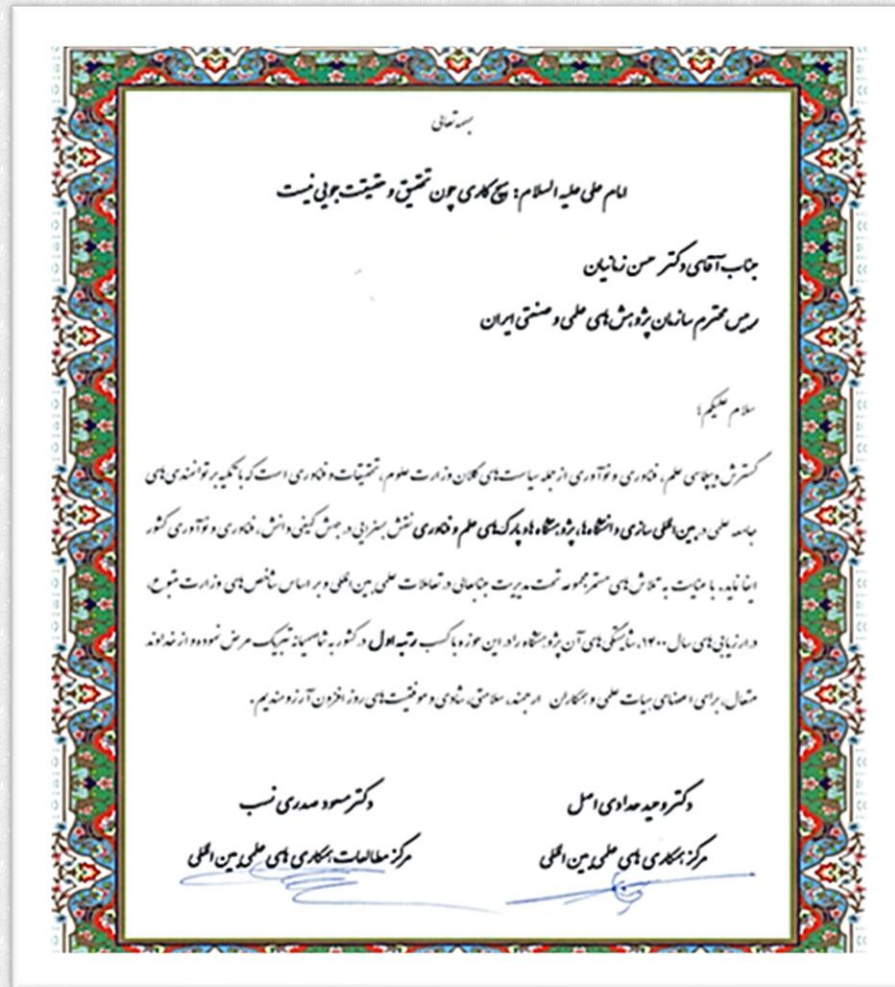 بسمه تعالی
امام علی علیه السلام: هیچ کاری چون تحقیق و حقیقت جویی نیست
جناب آقای دکتر حسن زمانیان
رییس محترم سازمان پژوهش های علمی و صنعتی ایران
سلام علیکم؛
گسترش دیپلماسی علم، فناوری و نوآوری از جمله سیاست های کلان وزارت علوم، تحقیقات و فناوری است که با تکیه بر توانمندی های
جامعه علمی در بین المللی سازی دانشگاه ها، پژوهشگاه ها و پارک های علم و فناوری نقش بسزایی در جهش کیفی دانش، فناوری و نوآوری کشور
ایفا نماید. با عنایت به تلاش های مستمر مجموعه تحت مدیریت جنابعالی در تعاملات علمی بین المللی و بر اساس شاخص های وزارت متبوع،
در ارزیابی های سال ۱۴۰۰، شایستگی های آن پژوهشگاه را در این حوزه و با کسب رتبه اول در کشور به شما صمیمانه تبریک عرض نموده و از خداوند
متعال، برای اعضای هیات علمی و همکاران ارجمند، سلامتی، شادی و موفقیت های روز افزون آرزومندیم.
دکتر وحید حدادی اصل
دکتر مسعود صدری نسب
مرکز همکاری های علمی بین المللی
مرکز مطالعات همکاری های علمی بین المللی